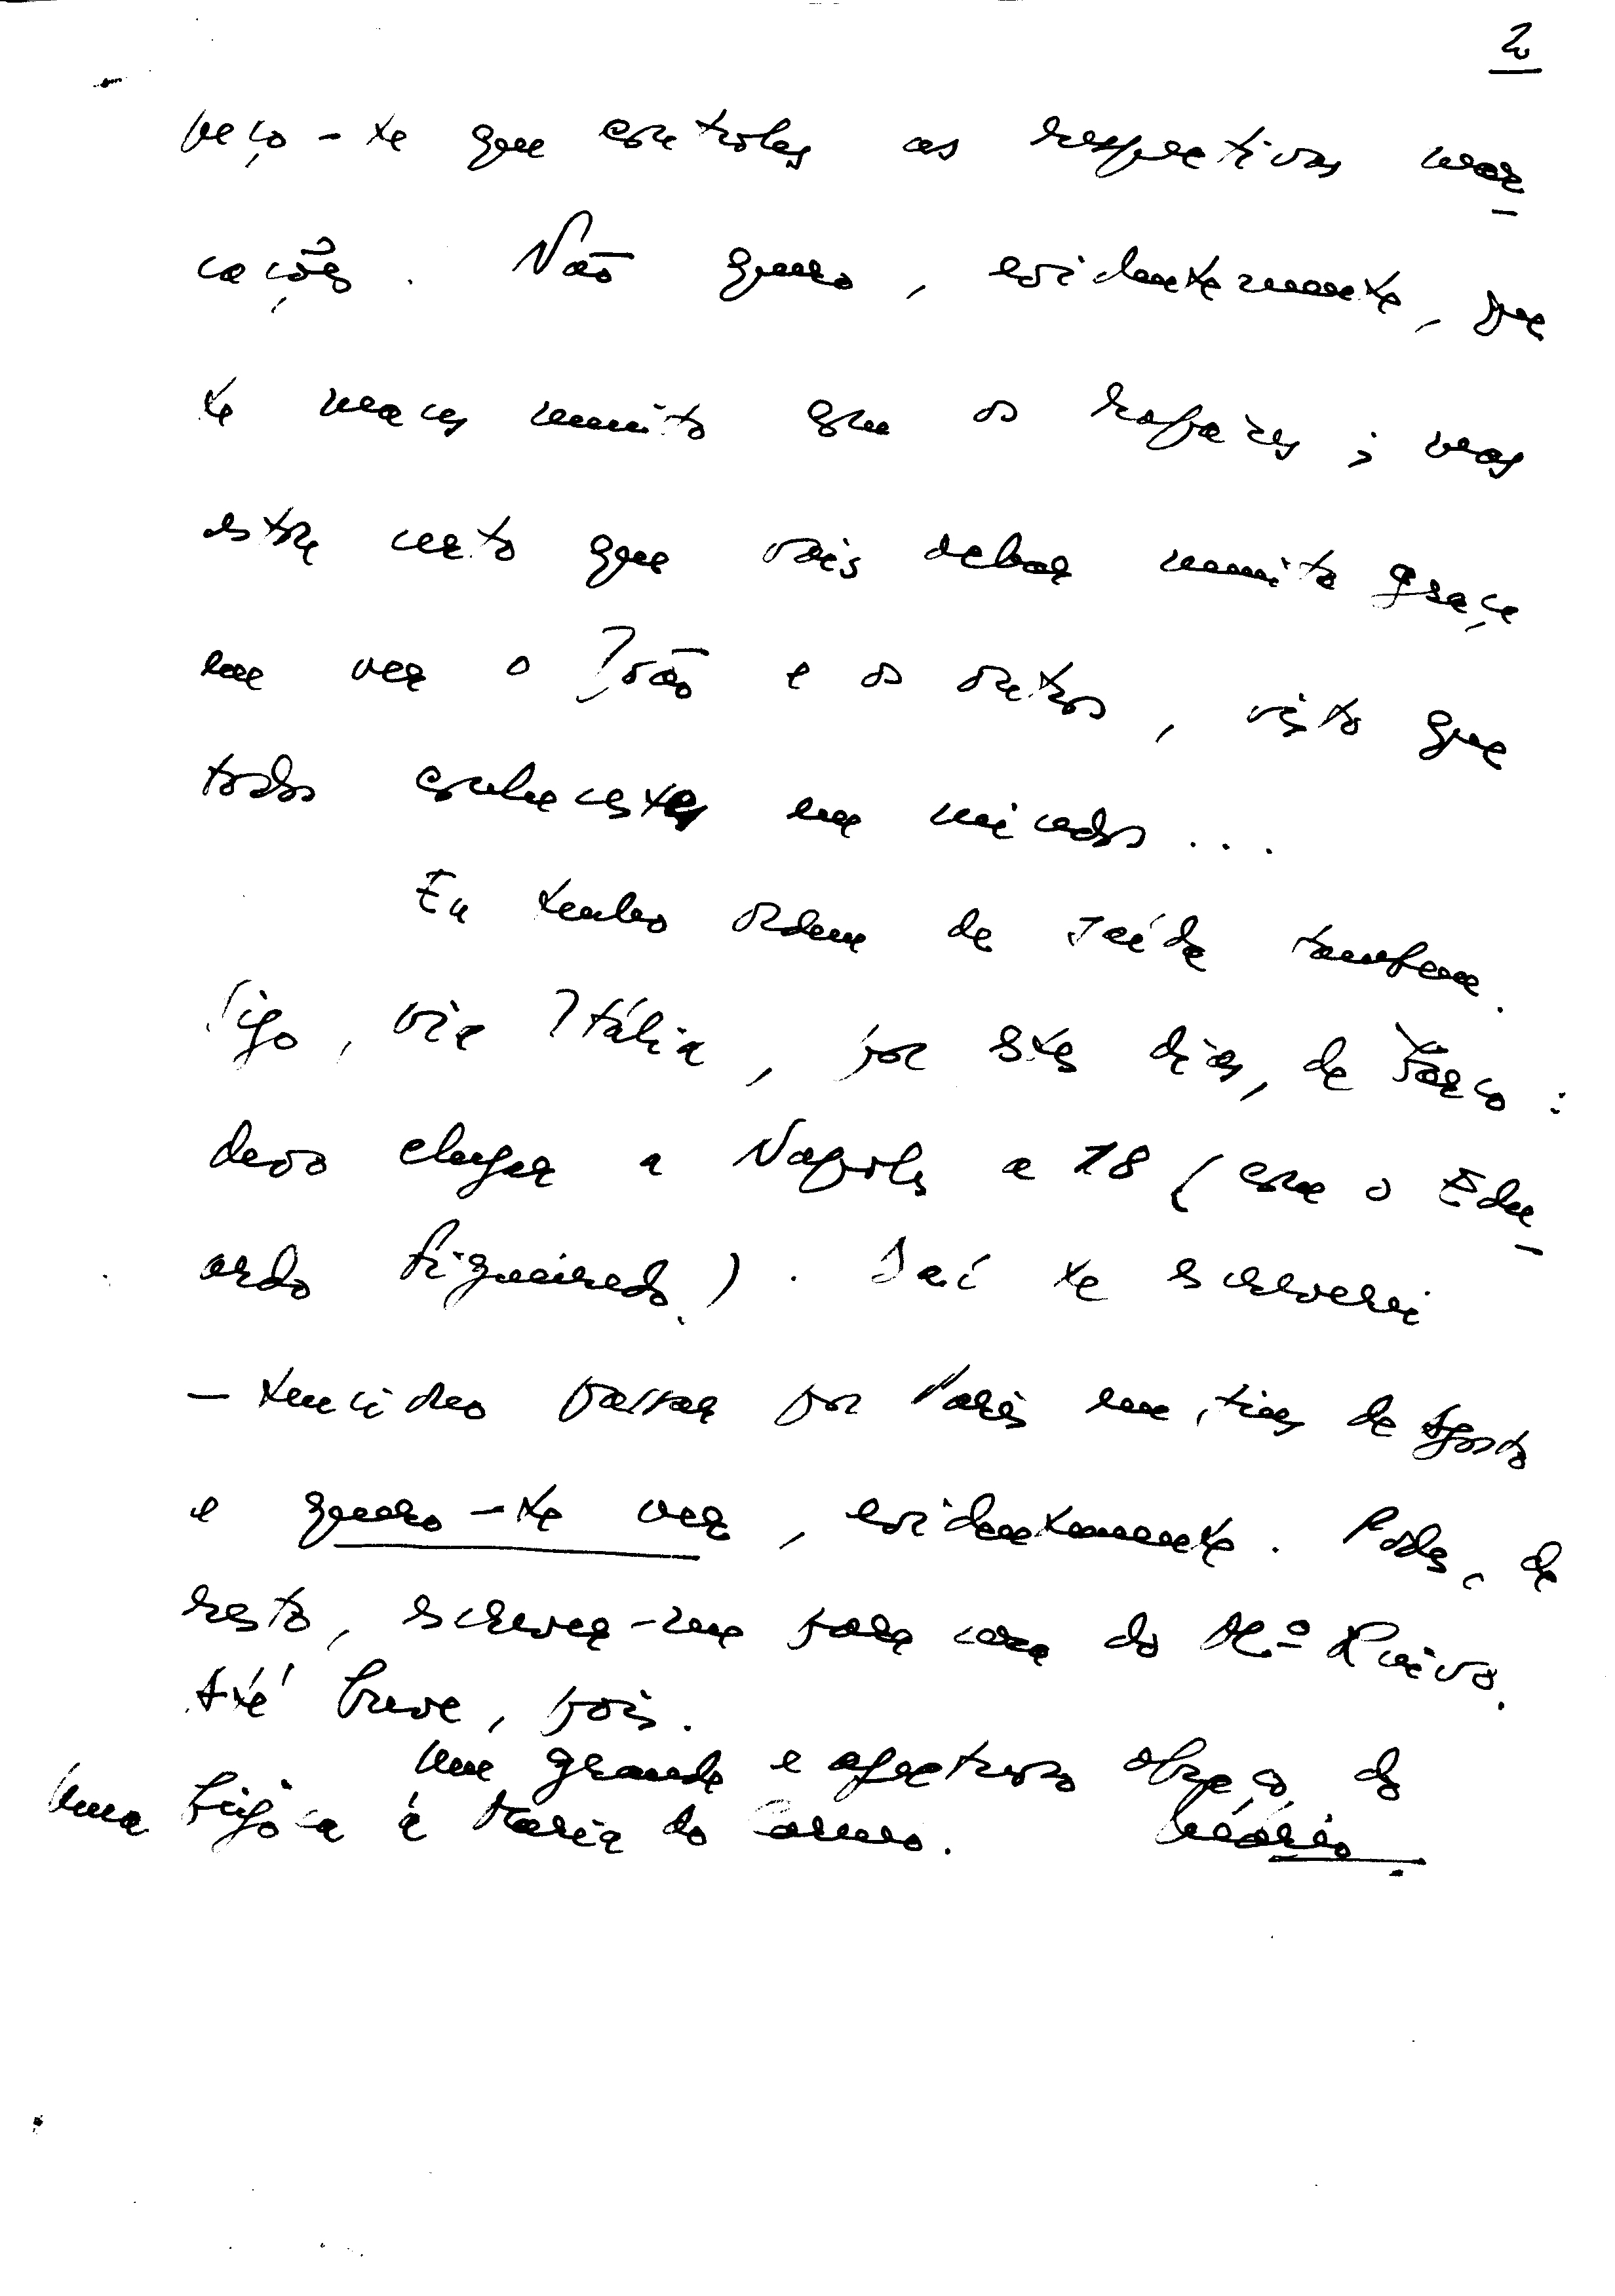 2
peço-te que controles as respectivas mar-
cações. Não quero, evidentemente, que
te maces muito com os rapazes; mas
estou certo que vais achar muita graça
em ver o João e os outros, visto que
todos conheceste em miúdos...
Eu tenho ordem de saída também.
Sigo, via Itália, por estes dias, de barco:
devo chegar a Napoles a 18 (com o Edu-
ardo Figueiredo). Daí te escreverei
- tenciono passar por Paris em fins de Agosto
e quero-te ver, evidentemente. Podes, de
resto, escrever-me para casa do M.º Ruivo.
Até breve, pois.
Um grande e afectuoso abraço do
Mário
Uma figóca à Maria do Carmo.